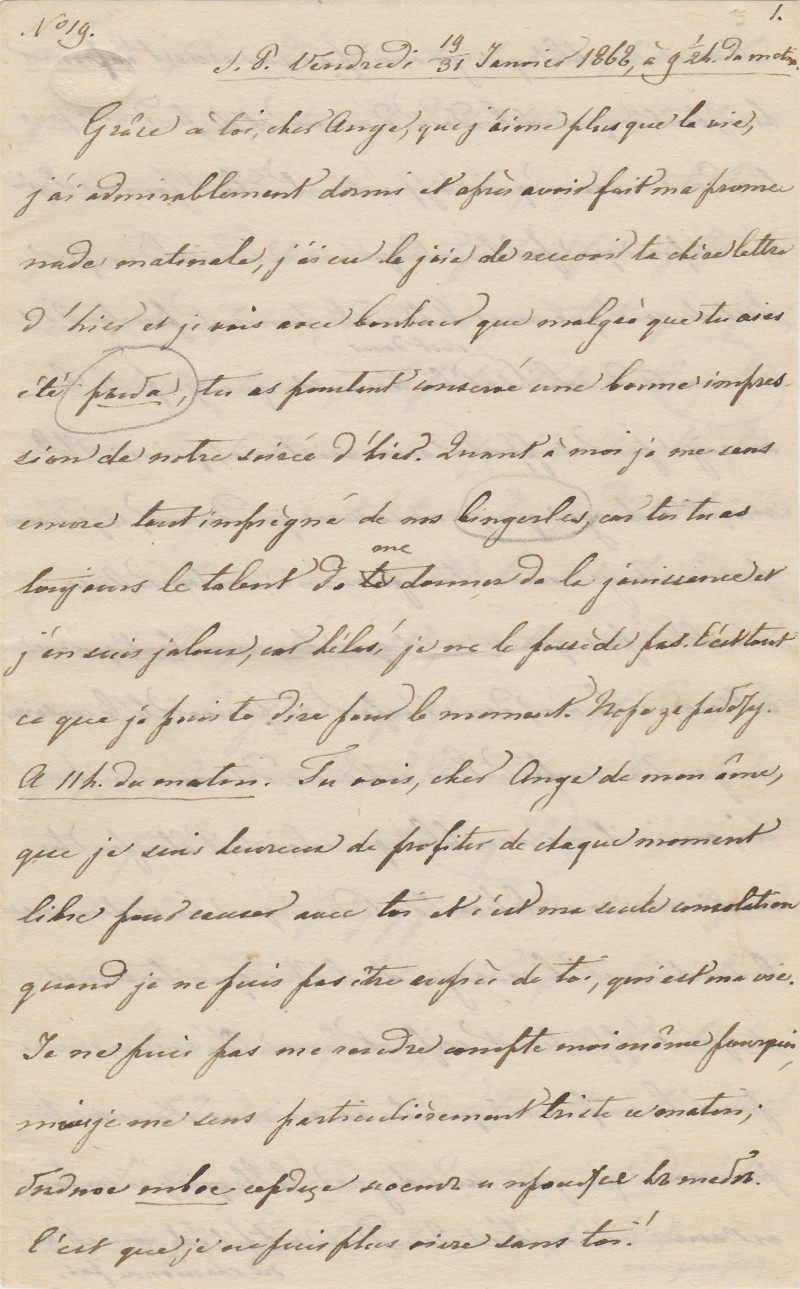 Nº 19.
1.
S. P. Vendredi 19/31 Janvier 1868, à 9 1/2 h. du matin.
Grâce à toi, cher Ange, que j'aime plus que la vie,
j'ai admirablement dormi et après avoir fait ma prome
nade matinale, j'ai eu la joie de recevoir ta chère lettre
d'hier et je vois avec bonheur que malgrè que tu aies
été рыба, tu as pourtant conservé une bonne impres-
sion de notre soirée d'hier. Quant à moi je me sens
encore tout imprègné de nos bingerles, car toi tu as
toujours le talent de me donner de la jouissance et
j'en suis jaloux, car hélas! je ne le possède pas. C'est tout
ce que je puis te dire pour le moment.
A 11 h. du matin. Tu vois, cher Ange de mon âme,
que je suis heureux de profiter de chaque moment
libre pour causer avec toi et c'est ma seule consolation
quand je ne puis pas être auprès de toi, qui est ma vie.
Je ne puis pas me rendre compte moi même pourquoi,
mais je me sens particulièrement triste ce matin;
бѣдное твое сердце ноетъ и просится къ тебѣ.
C'est que je ne puis plus vivre sans toi!